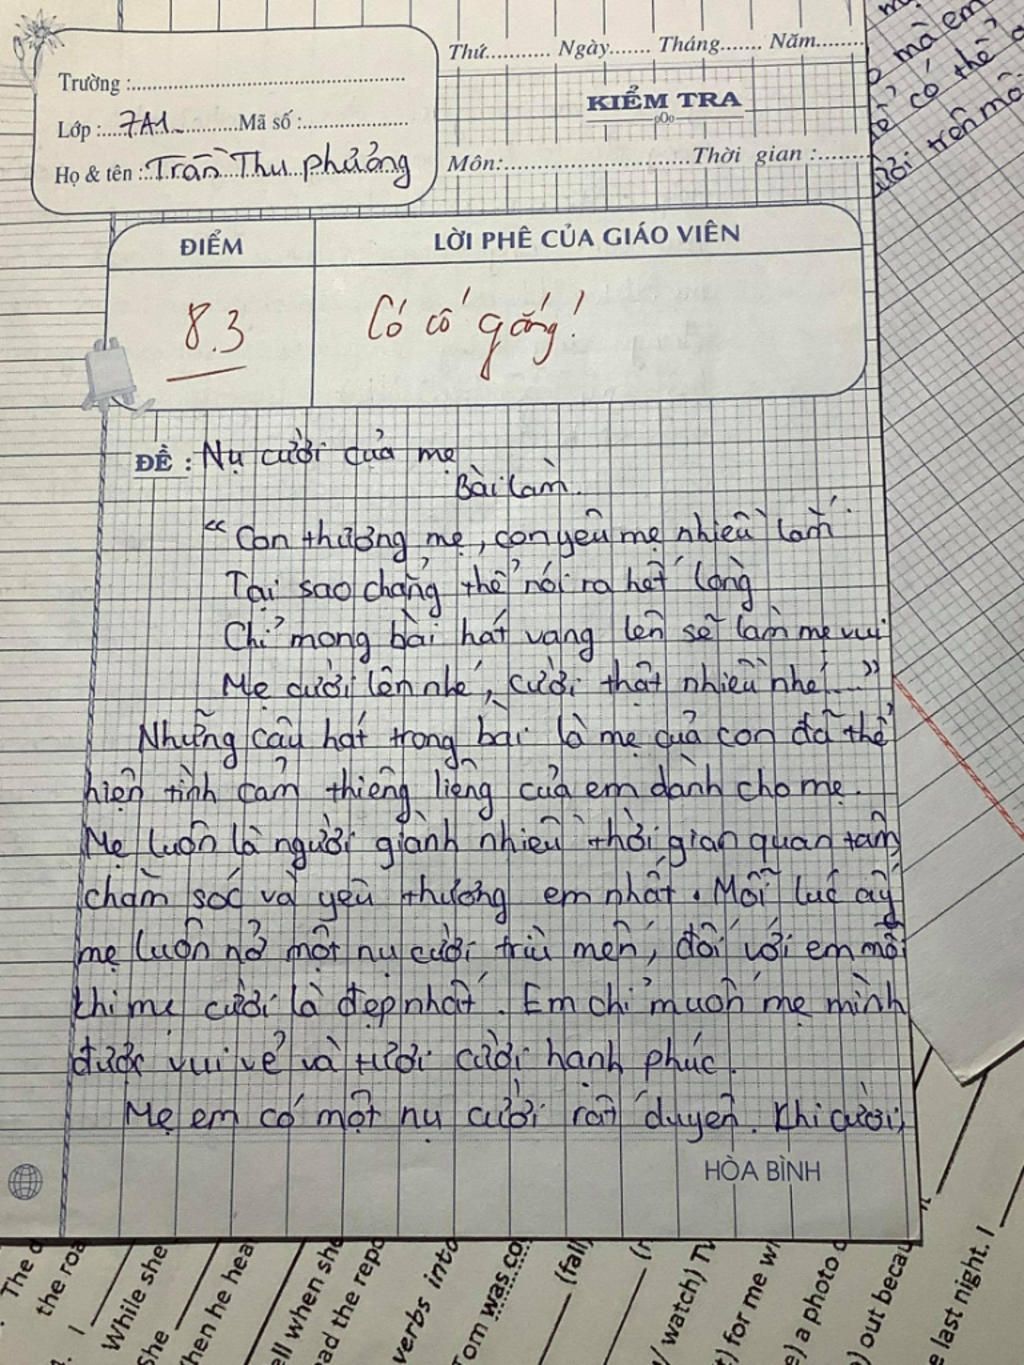 Thứ........... Ngày....... Tháng....... Năm........
Trường :
KIỂM TRA
Lớp : 7A1 Mã số :
Môn: Thời gian :
Họ & tên : Trần Thu Phưởng
ĐIỂM LỜI PHÊ CỦA GIÁO VIÊN
8.3 Có cố gắng!
ĐỀ : Nụ cười của mẹ
Bài làm.
“Con thương mẹ, con yêu mẹ nhiều lắm
Tại sao chẳng thể nói ra hết lòng
Chỉ mong bài hát vang lên sẽ làm mẹ vui
Mẹ cười lên nhé, cười thật nhiều nhé....”
Những câu hát trong bài là mẹ quả con đã thể
hiện tình cảm thiêng liêng của em dành cho mẹ.
Mẹ luôn là người giành nhiều thời gian quan tâm
chăm sóc và yêu thương em nhất. Mỗi lúc ấy
mẹ luôn nở một nụ cười trìu mến, đối với em mỗi
khi mẹ cười là đẹp nhất. Em chỉ muốn mẹ mình
được vui vẻ và tươi cười hạnh phúc.
Mẹ em có một nụ cười rất duyên. Khi cười,
HÒA BÌNH
mà em
có thể
trên mô
The
the roa
I
While she
She
When he hea
ell when she
ad the repo
verbs into
Tom was co
(fall,
/ watch) TV
) for me w
) a photo
) out becau
e last night. I